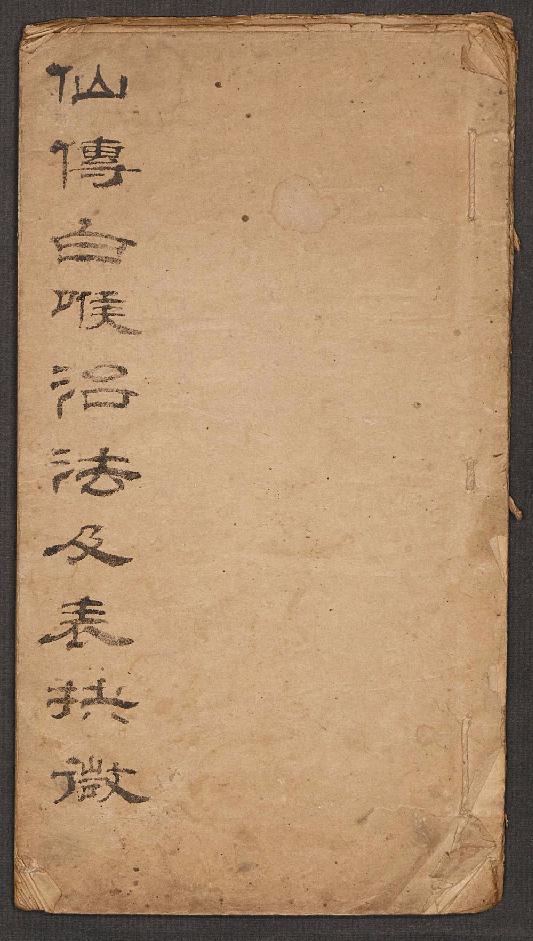 仙傳白喉治法及表抉微